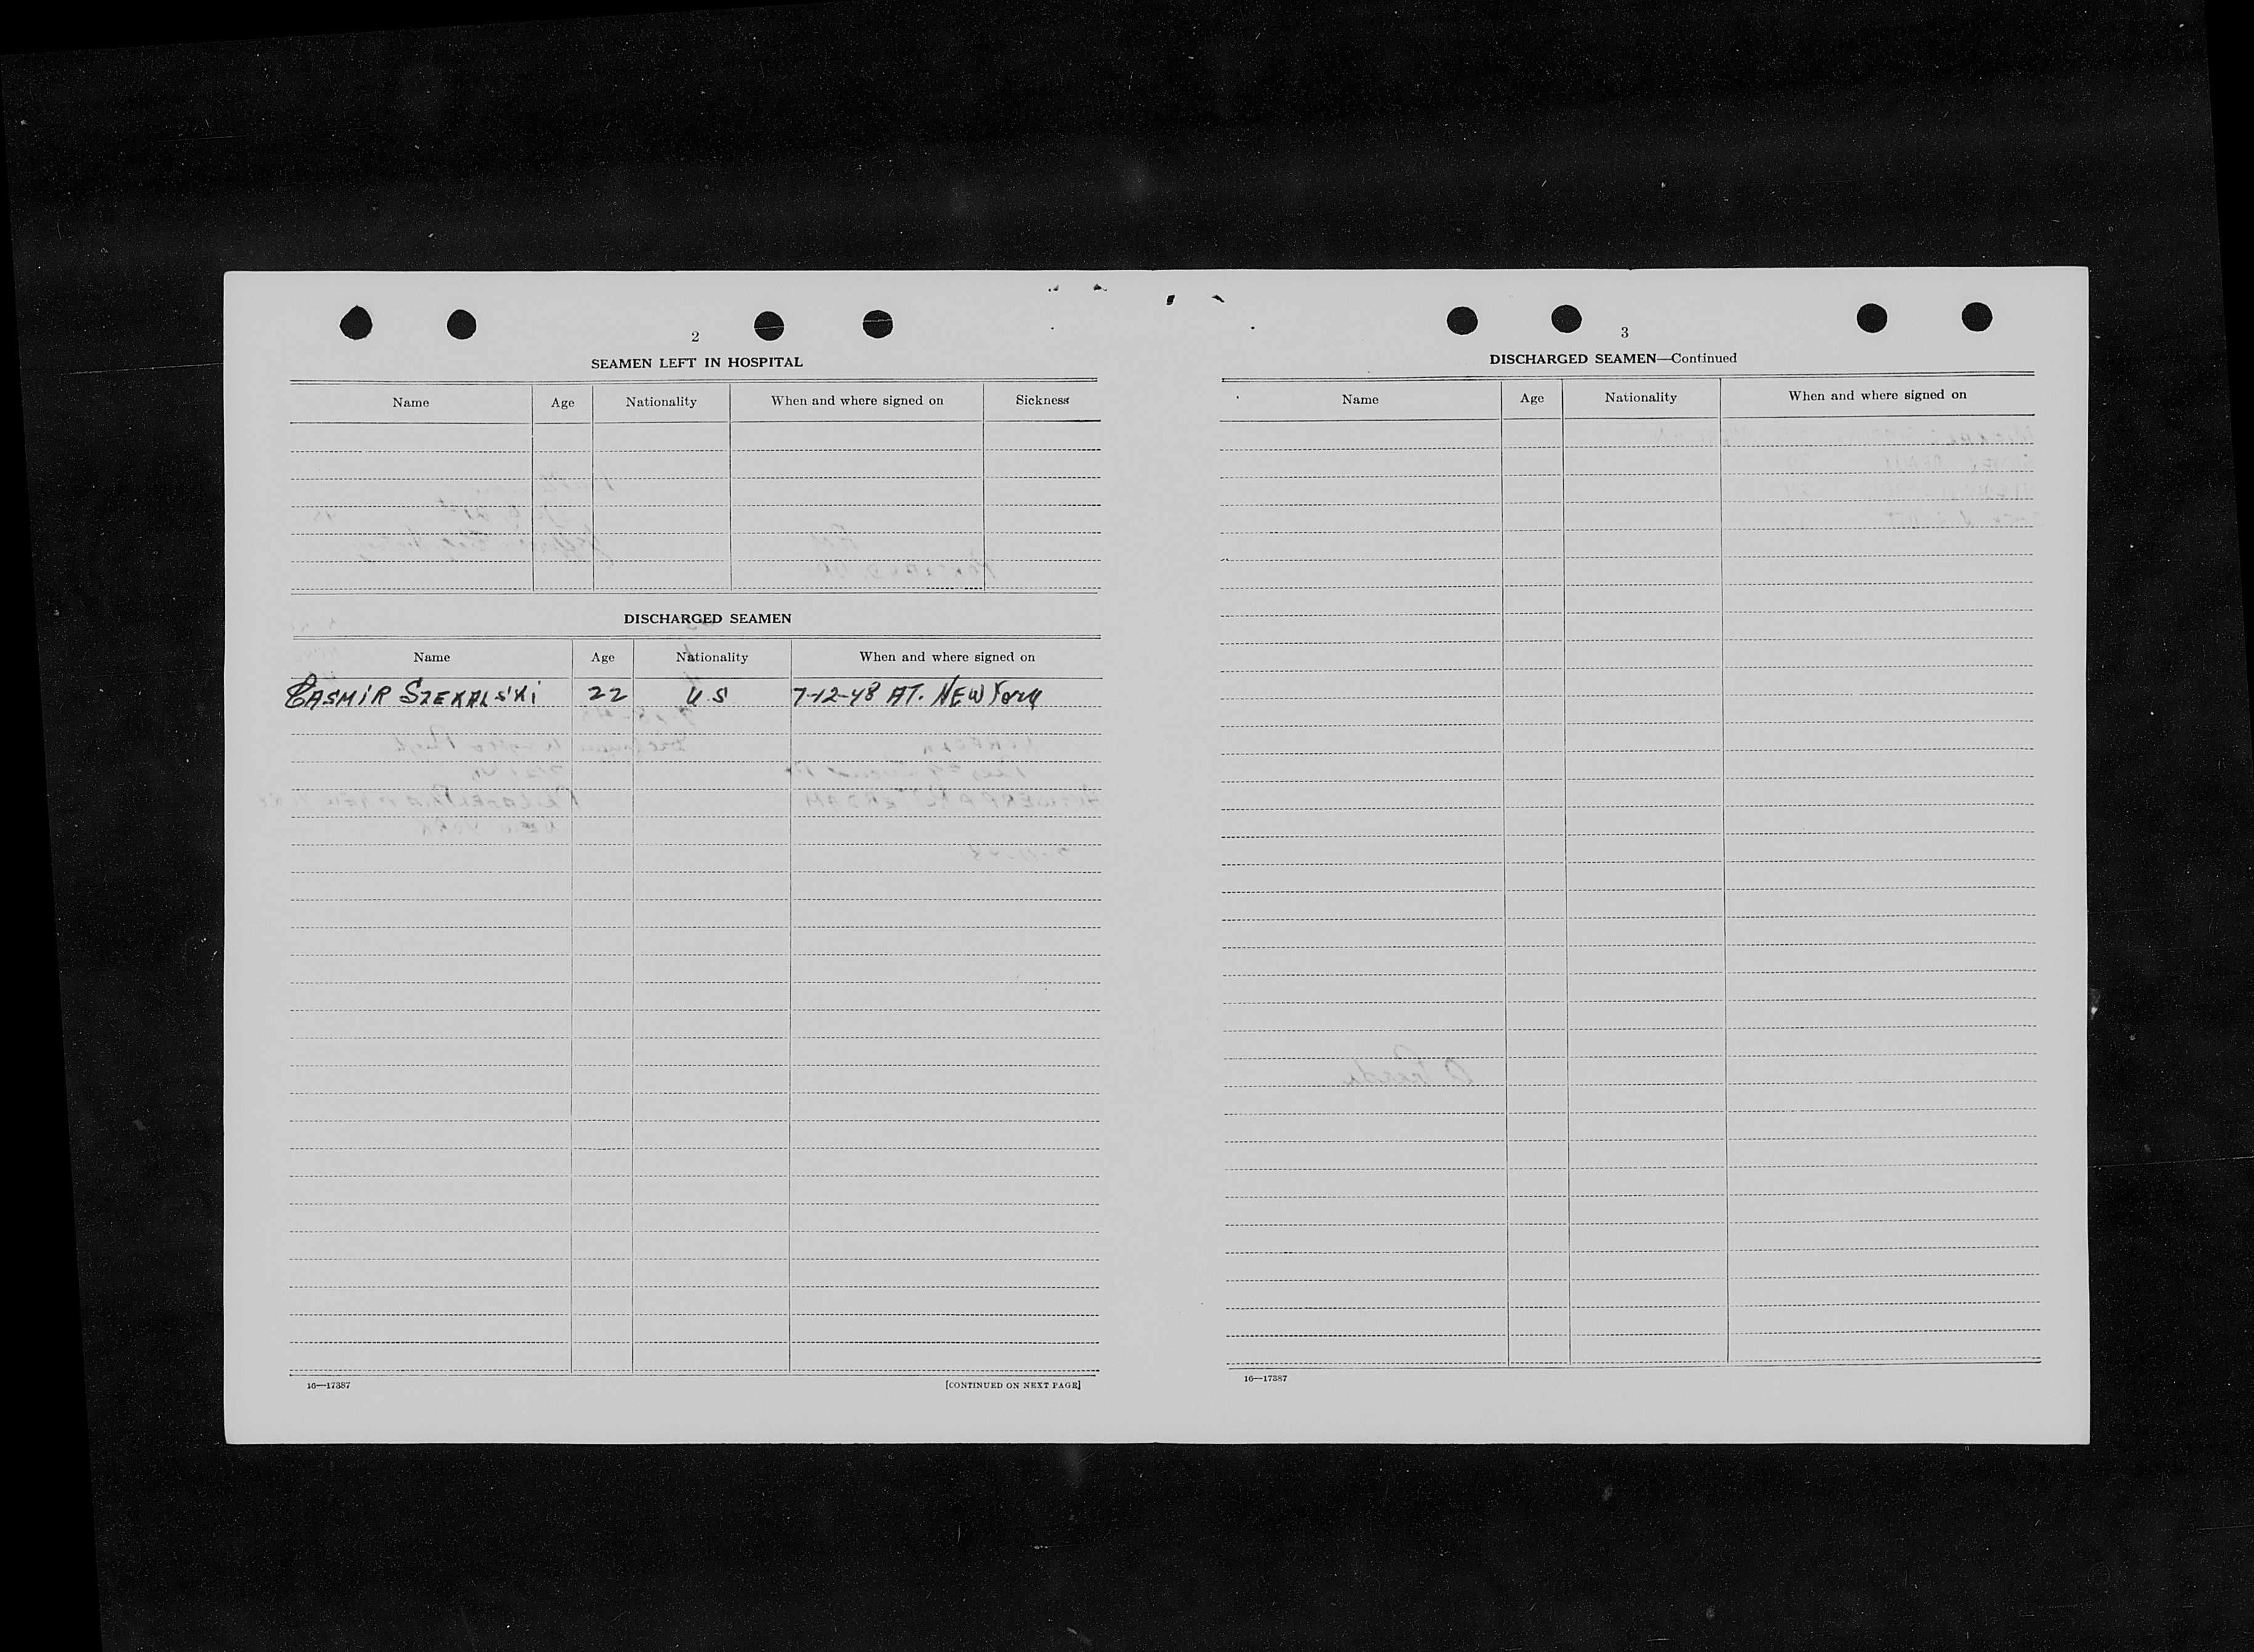 2
SEAMEN LEFT IN HOSPITAL
Name Age Nationality When and where signed on Sickness
DISCHARGED SEAMEN
Name Age Nationality When and where signed on
CASMIR SZEKALSKI 22 U.S 7-12-48 AT. NEW YORK
16—17387 [CONTINUED ON NEXT PAGE]
3
DISCHARGED SEAMEN—Continued
Name Age Nationality When and where signed on
16—17387